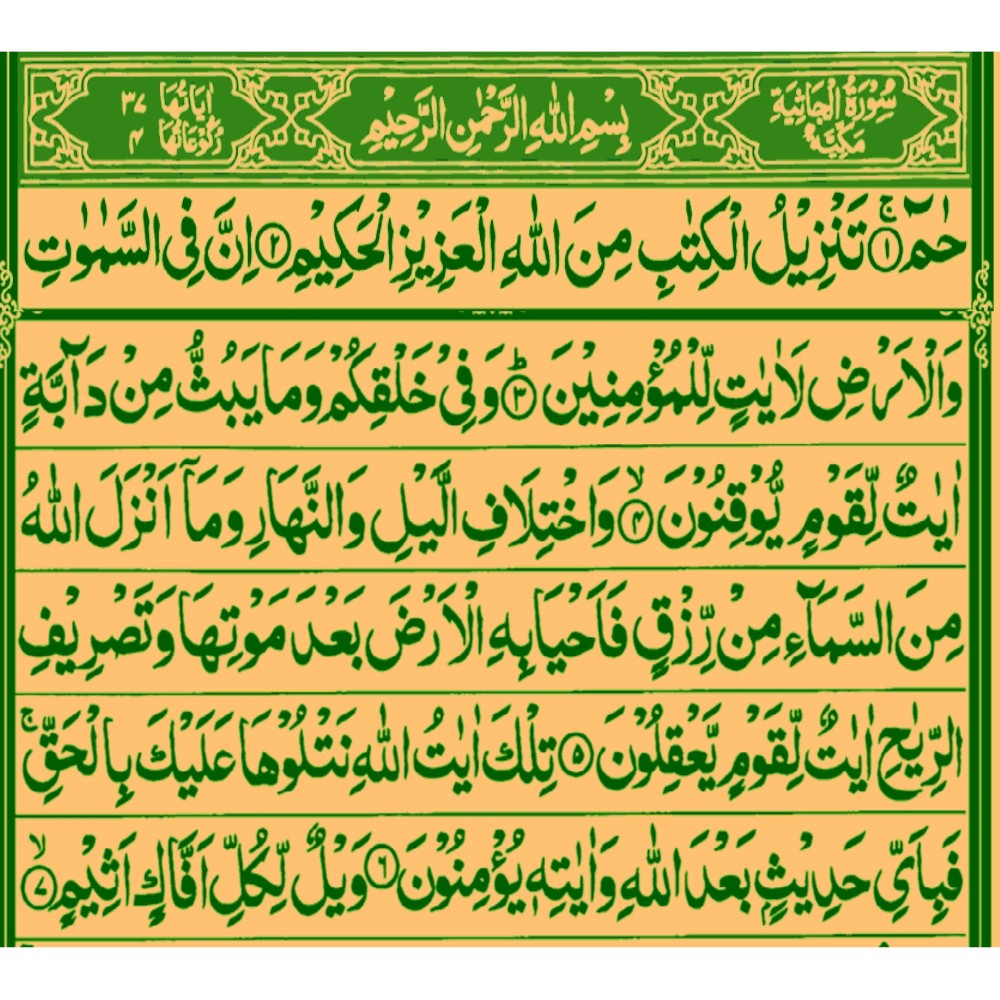 سُوۡرَةُ الۡجَاثِيَةِ مَكِّيَّةٌ بِسْمِ اللهِ الرَّحْمٰنِ الرَّحِيْمِ اٰيَاتُهَا ٣٧ رُكُوْعَاتُهَا ۴
حٰمٓ ۚ﴿۱﴾ تَنْزِيْلُ الْكِتٰبِ مِنَ اللهِ الْعَزِيْزِ الْحَكِيْمِ ﴿۲﴾ اِنَّ فِى السَّمٰوٰتِ
وَالْاَرْضِ لَاٰيٰتٍ لِّلْمُؤْمِنِيْنَ ؕ﴿۳﴾ وَفِىْ خَلْقِكُمْ وَمَا يَبُثُّ مِنْ دَآبَّةٍ
اٰيٰتٌ لِّقَوْمٍ يُّوْقِنُوْنَ ۙ﴿۴﴾ وَاخْتِلَافِ الَّيْلِ وَالنَّهَارِ وَمَاۤ اَنْزَلَ اللهُ
مِنَ السَّمَآءِ مِنْ رِّزْقٍ فَاَحْيَا بِهِ الْاَرْضَ بَعْدَ مَوْتِهَا وَتَصْرِيْفِ
الرِّيٰحِ اٰيٰتٌ لِّقَوْمٍ يَّعْقِلُوْنَ ﴿۵﴾ تِلْكَ اٰيٰتُ اللهِ نَتْلُوْهَا عَلَيْكَ بِالْحَقِّ ۚ
فَبِاَىِّ حَدِيْثٍۭ بَعْدَ اللهِ وَاٰيٰتِهٖ يُؤْمِنُوْنَ ﴿۶﴾ وَيْلٌ لِّكُلِّ اَفَّاكٍ اَثِيْمٍ ۙ﴿۷﴾